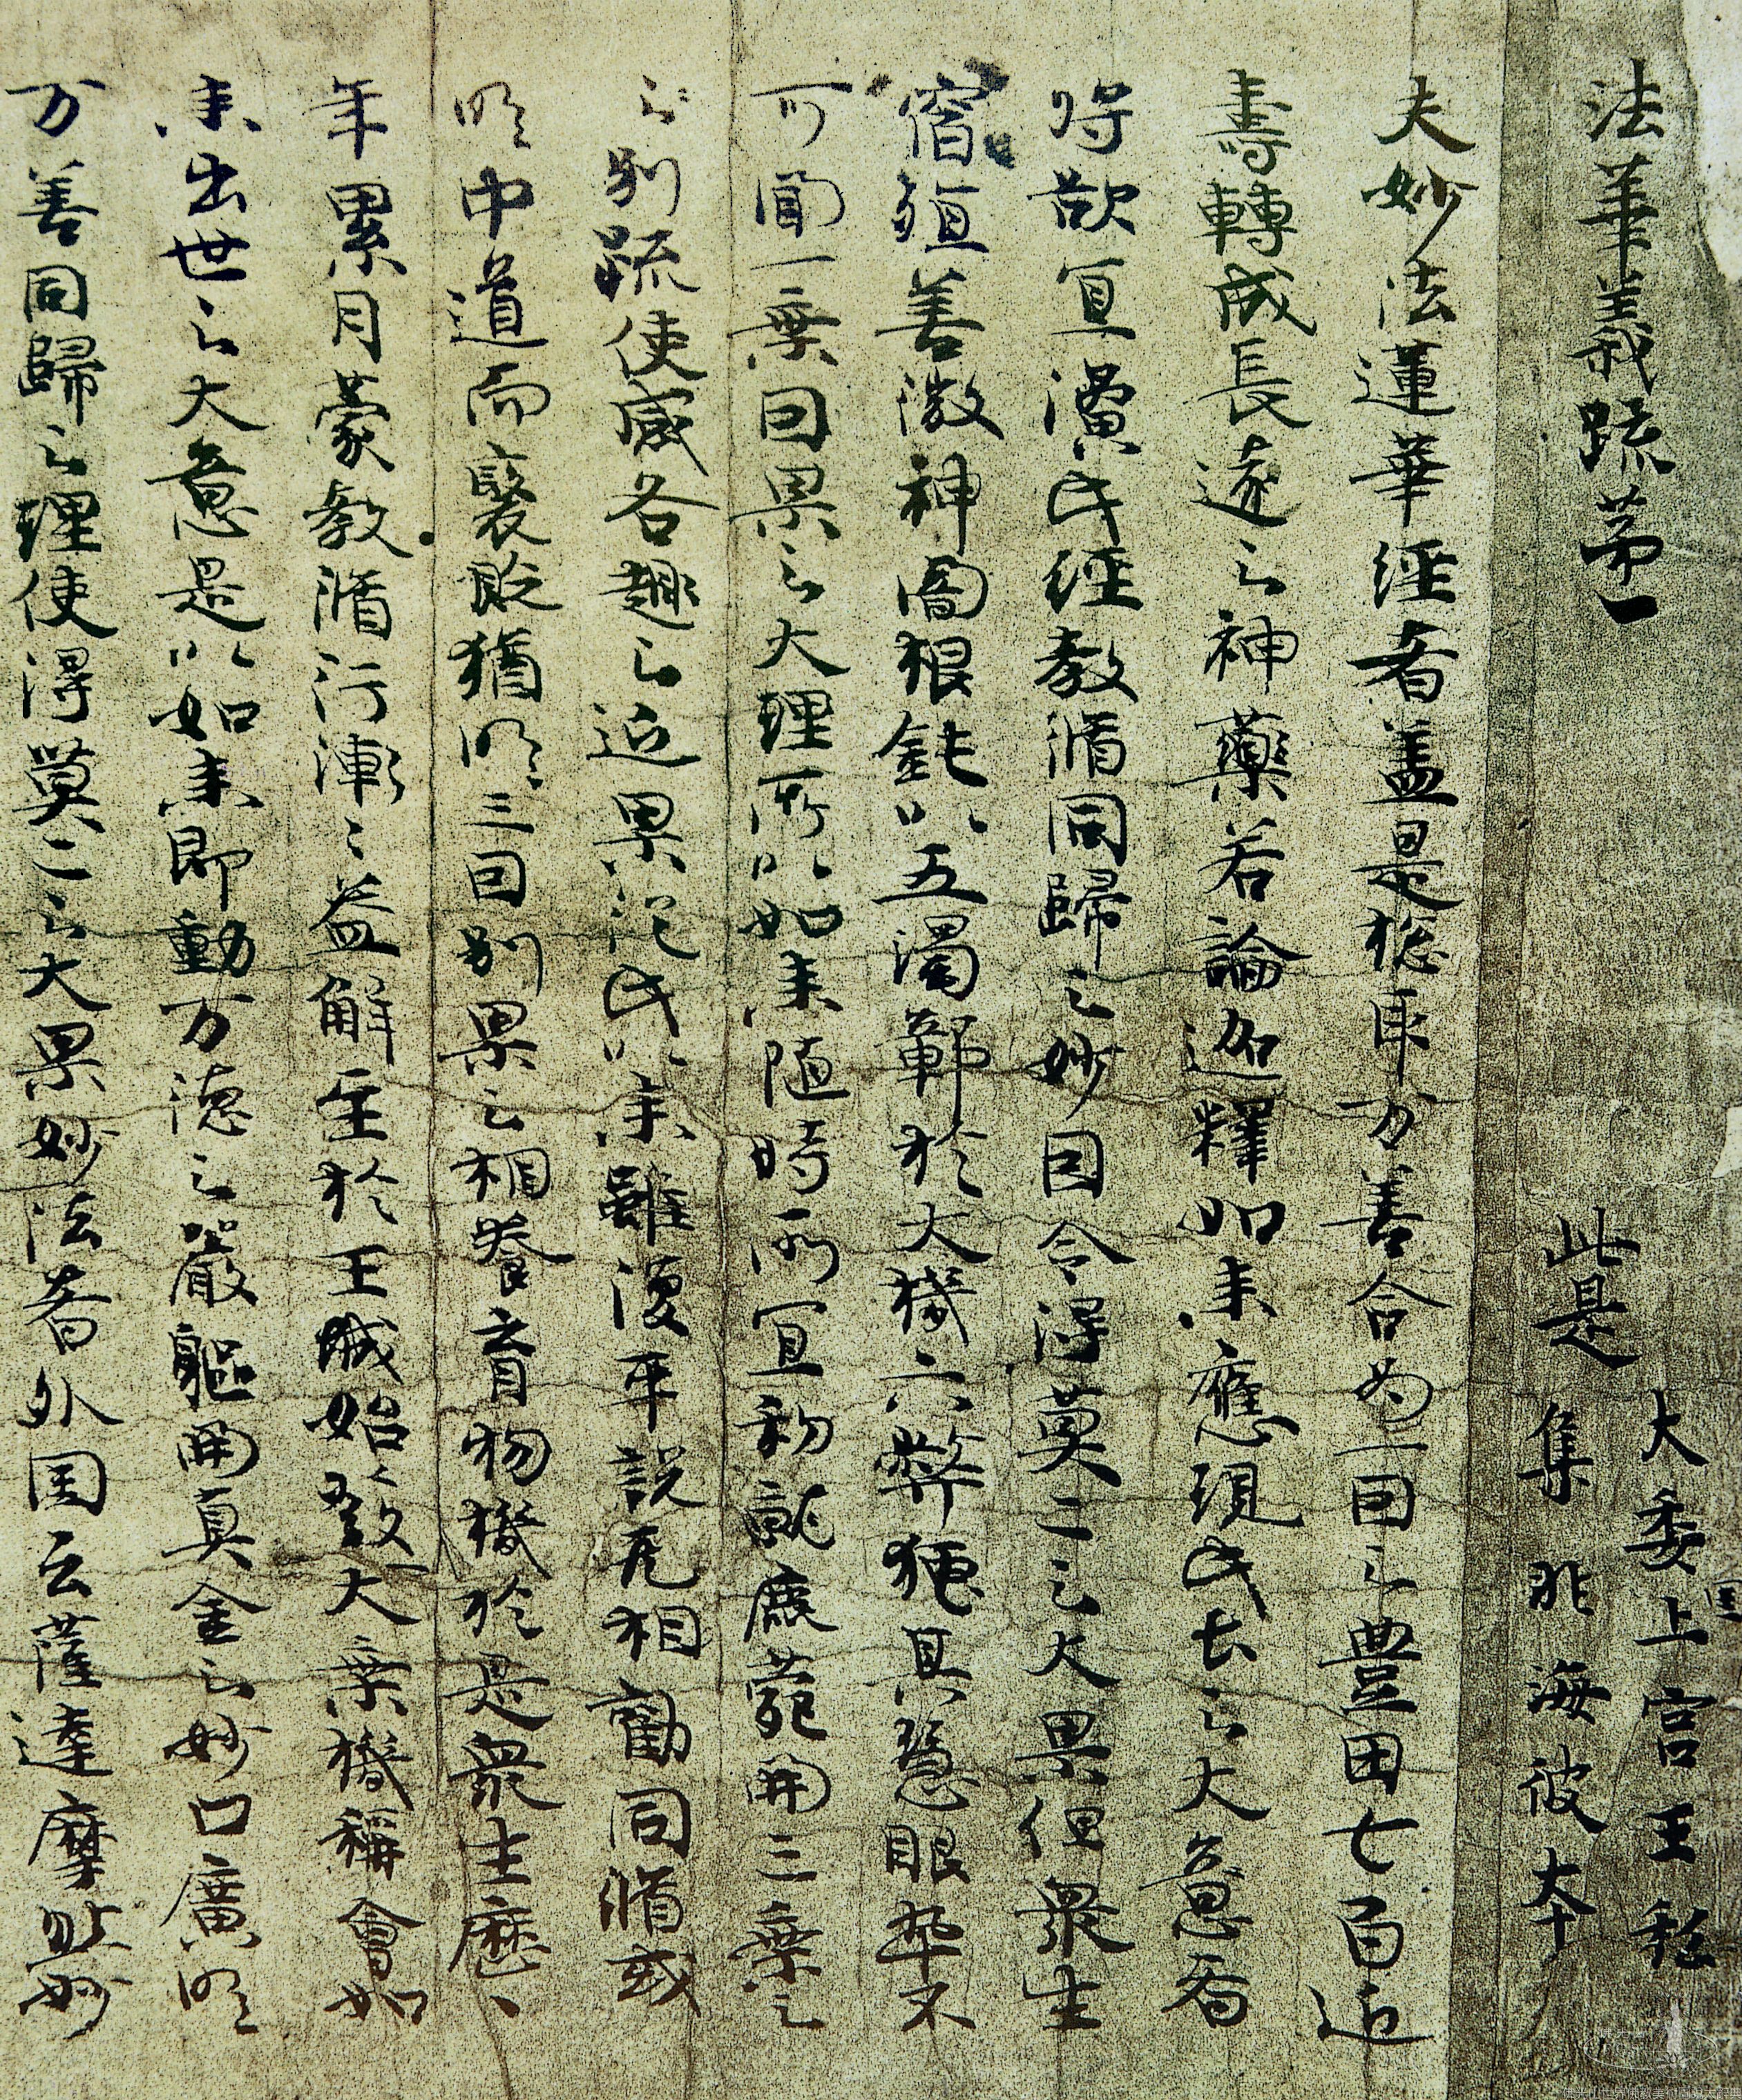 法華義疏第一
此是
大委国上宮王私
集非海彼本
夫妙法蓮華経者盖是惣取万善合為一因之豊田七百近
壽轉成長遠之神薬若論迩釋如来應現此土之大意者
将欲宜演此経教脩同歸之妙因令得莫二之大果但衆生
宿殖善微神闇根鈍以五濁鄣於大機六弊掩其慧眼卒不
可聞一乗因果之大理所以如来随時所宜初就鹿菀開三乗之
之別疏使感各趣之近果従此以来雖復平説无相勧同脩或
明中道而褒貶猶明三因別果之相養育物機於是衆生歴、
年累月蒙教脩行漸〻益解至於王城始發大乗機稱會如
来出世之大意是以如来即動万徳之嚴軀開真金之妙口廣明
万善同歸之理使得莫二之大果妙法者外国云薩達摩然妙